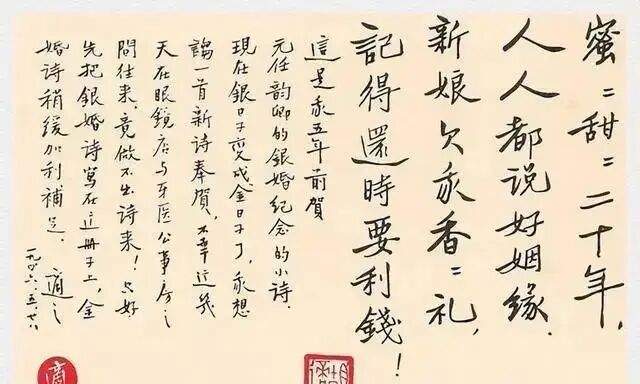 蜜〻甜〻二十年，
人人都說好姻緣.
新娘欠我香〻禮，
記得還時要利錢！
這是我五年前賀
元任韵卿的銀婚紀念的小詩.
現在銀日子變成金日子了，我想
謅一首新詩奉賀，不幸這幾
天在眼鏡店与牙医公事房之
間往來，竟做不出詩來！只好
先把銀婚詩寫在這冊子上，金
婚詩稍緩加利補足. 適之
一九四六.五.廿八
胡適
適